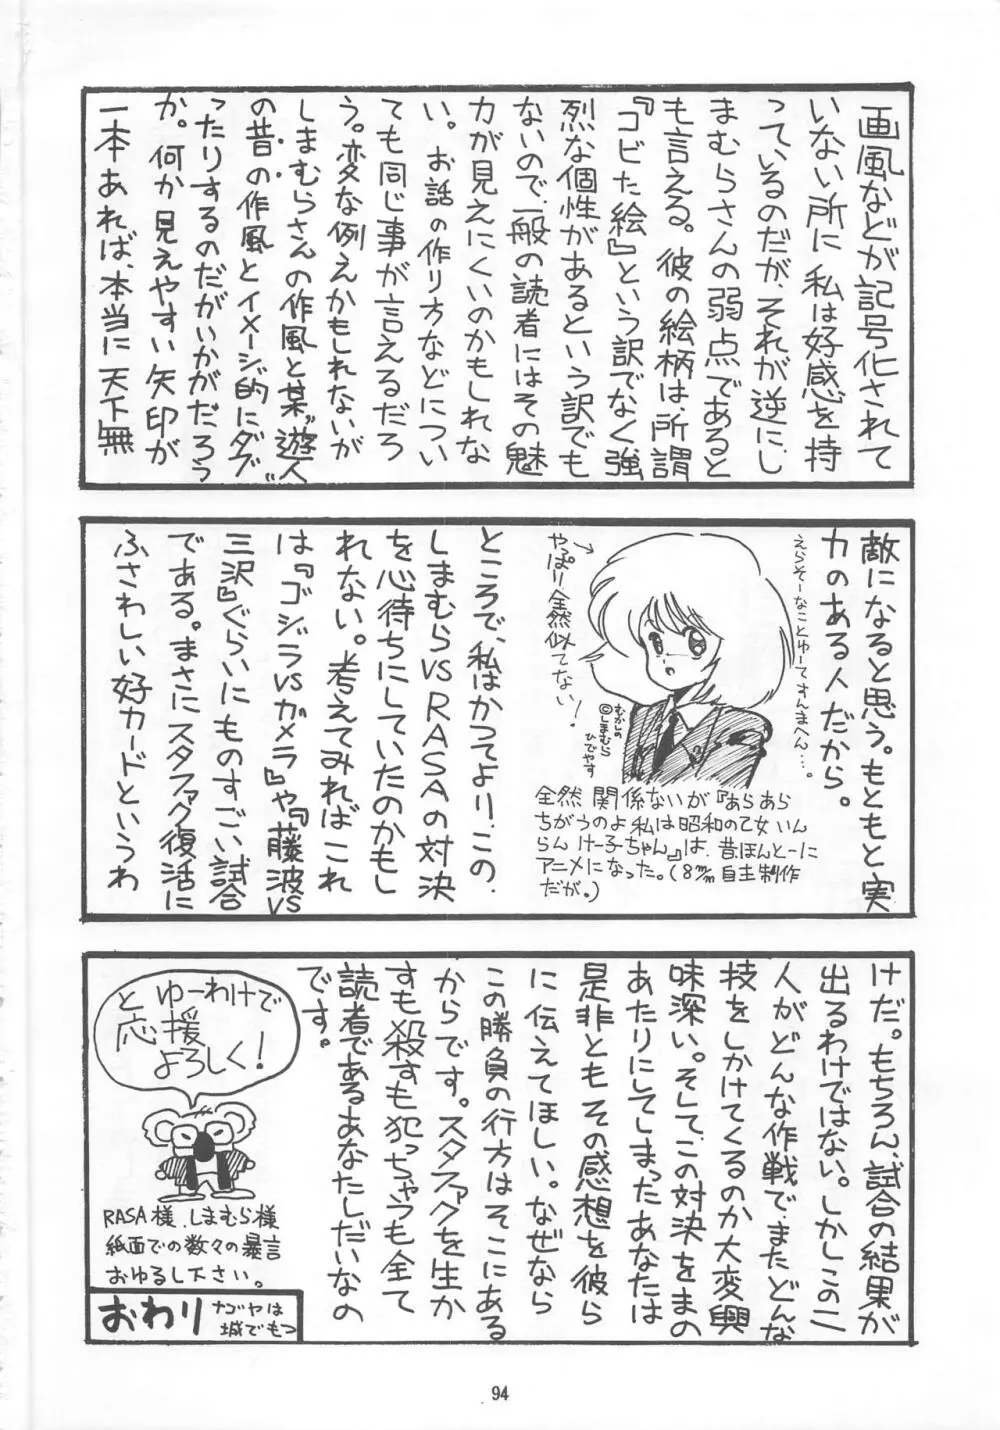 画風などが記号化されて
いない所に 私は好感を持
っているのだが、それが逆にし
まむらさんの弱点であると
も言える。彼の絵柄は、所謂
『コビた絵』という訳でなく強
烈な個性があるという訳でも
ないので、一般の読者にはその魅
力が見えにくいのかもしれな
い。お話の作り方などについ
ても同じ事が言えるだろ
う。変な例えかもしれないが
しまむらさんの作風と某"遊人"
の昔の作風とイメージ的にダブ
ったりするのだがいかがだろう
か。何か見えやすい矢印が
一本あれば、本当に「天下無
敵になると思う。もともと実
力のある人だから。
えらそーなことゆーてすんまへん…。
やっぱり全然似てない!
むかしの
©しまむら
ひでやす
全然 関係ないが『あらあら
ちがうのよ 私は昭和の乙女 いん
らん けー子ちゃん』は、昔ほんとーに
アニメになった。(8m/m 自主制作
だが。)
ところで、私はかつてより、この、
しまむらVSRASAの対決
を心待ちにしていたのかもし
れない。考えてみれば これ
は『ゴジラVSガメラ』や『藤波VS
三沢』ぐらいにものすごい試合
である。まさにスタファグ復活に
ふさわしい好カードというわ
けだ。もちろん、試合の結果が
出るわけではない。しかしこの二
人がどんな作戦で、またどんな
技をしかけてくるのか大変興
味深い。そして、この対決をまの
あたりにしてしまったあなたは
是非とも その感想を彼ら
に伝えてほしい。なぜなら
この勝負の行方はそこにある
からです。スタファグを生か
すも殺すも犯っちゃうも全て
読者であるあなたしだいなの
です。
と ゆーわけで
応援
よろしく!
RASA様、しまむら様
紙面での数々の暴言
おゆるし下さい。
おわり
ナゴヤは
城でもつ
94